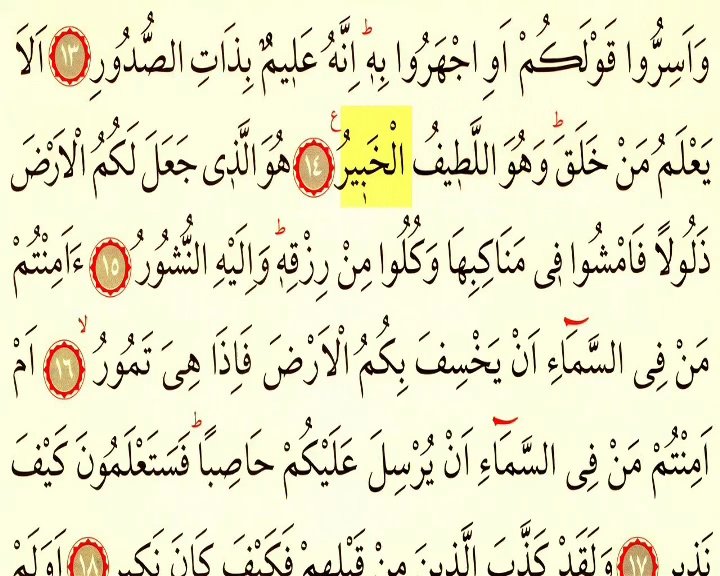 وَاَسِرُّوا قَوْلَكُمْ اَوِ اجْهَرُوا بِهٖۜ اِنَّهُ عَلٖيمٌ بِذَاتِ الصُّدُورِ ﴿١٣﴾ اَلَا
يَعْلَمُ مَنْ خَلَقَۜ وَهُوَ اللَّطٖيفُ الْخَبٖيرُ ﴿١٤﴾ هُوَ الَّذٖى جَعَلَ لَكُمُ الْاَرْضَ
ذَلُولًا فَامْشُوا فٖى مَنَاكِبِهَا وَكُلُوا مِنْ رِزْقِهٖۜ وَاِلَيْهِ النُّشُورُ ﴿١٥﴾ ءَاَمِنْتُمْ
مَنْ فِى السَّمَٓاءِ اَنْ يَخْسِفَ بِكُمُ الْاَرْضَ فَاِذَا هِىَ تَمُورُ ﴿١٦﴾ اَمْ
اَمِنْتُمْ مَنْ فِى السَّمَٓاءِ اَنْ يُرْسِلَ عَلَيْكُمْ حَاصِبًاۜ فَسَتَعْلَمُونَ كَيْفَ
نَذٖيرِ ﴿١٧﴾ وَلَقَدْ كَذَّبَ الَّذٖينَ مِنْ قَبْلِهِمْ فَكَيْفَ كَانَ نَكٖيرِ ﴿١٨﴾ اَوَلَمْ